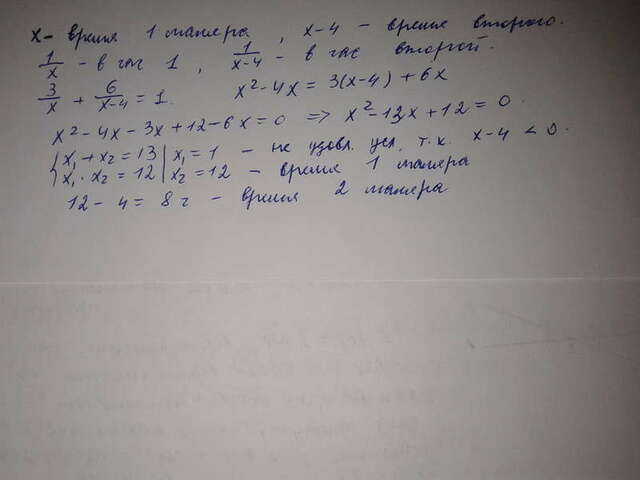 x - время 1 маляра, x-4 - время второго.
1/x - в час 1, 1/(x-4) - в час второй.
3/x + 6/(x-4) = 1. x² - 4x = 3(x-4) + 6x
x² - 4x - 3x + 12 - 6x = 0 => x² - 13x + 12 = 0.
{ x₁ + x₂ = 13 | x₁ = 1 - не удовл. усл, т.к. x-4 < 0.
{ x₁ · x₂ = 12 | x₂ = 12 - время 1 маляра
12 - 4 = 8 ч - время 2 маляра